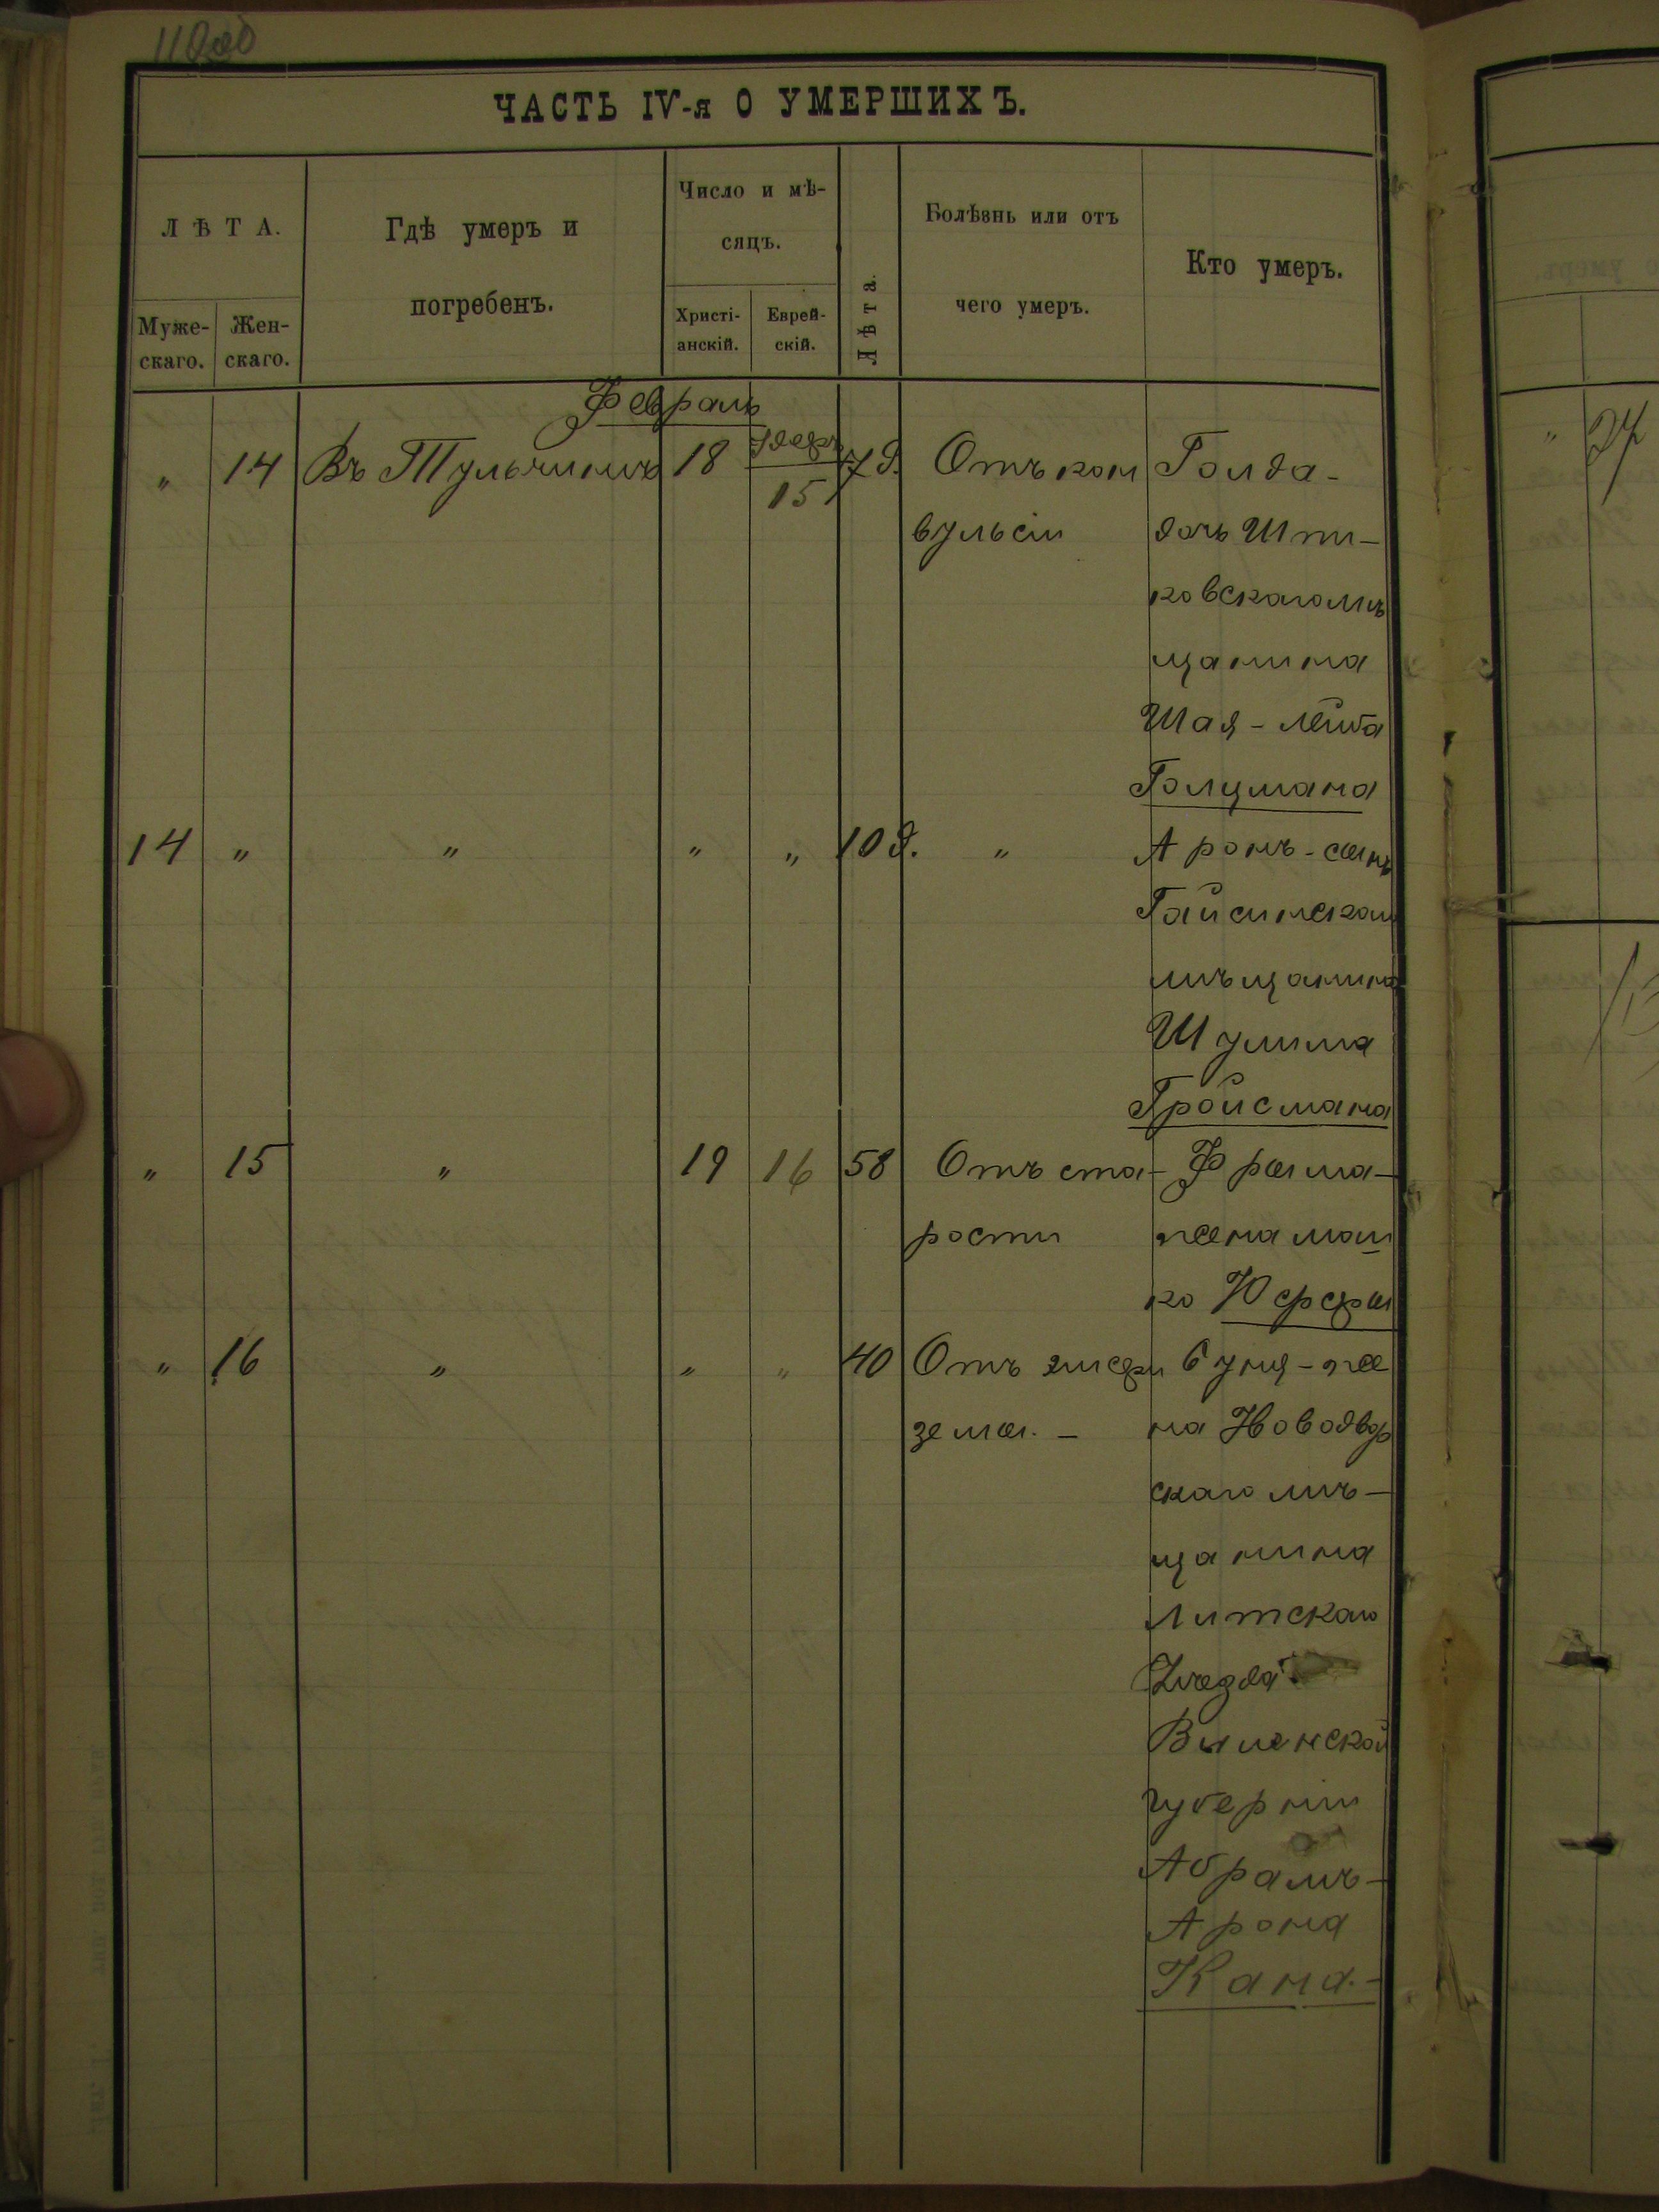 ЧАСТЬ IV-я О УМЕРШИХЪ.
ЛѢТА.
Муже-
скаго.
Жен-
скаго.
Гдѣ умеръ и
погребенъ.
Число и мѣ-
сяцъ.
Христі-
анскій.
Еврей-
скій.
Лѣта.
Болѣзнь или отъ
чего умеръ.
Кто умеръ.
Февраль
" 14 Въ Тульчинѣ 18 15 7 д. Отъ кон Голда-
вульсіи дочь Шпи-
ковскаго мѣ
щанина
Шая-Лейба
Голцмана
14 " " " " 10 д. " Аронъ-сынъ
Гайсинскаго
мѣщанина
Шулима
Гройсмана
" 15 " 19 16 58 Отъ ста- Фрыма-
рости жена
ко
" 16 " " " 40 Отъ Буня-же
земы.- на Новодвор
скаго мѣ-
щанина
Литскаго
уѣзда
Виленской
губерніи
Абрамъ-
Арона
Кана.-
27